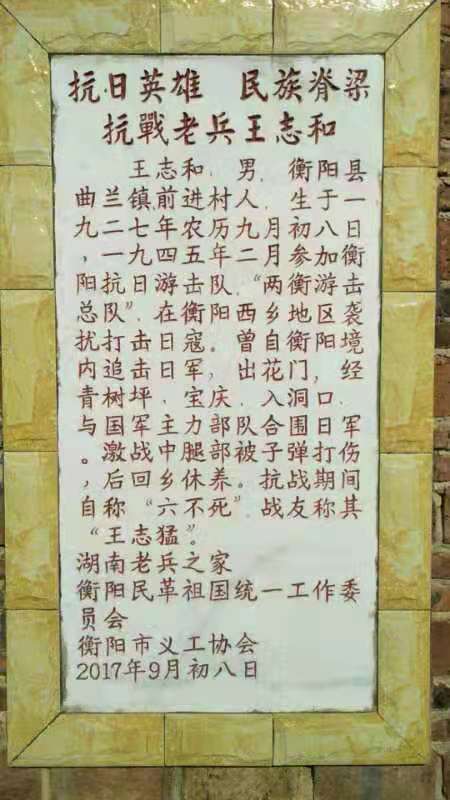 抗日英雄 民族脊梁
抗戰老兵王志和
王志和，男，衡阳县
曲兰镇前进村人，生于一
九二七年农历九月初八日
，一九四五年二月参加衡
阳抗日游击队“两衡游击
总队”，在衡阳西乡地区袭
扰打击日寇。曾自衡阳境
内追击日军，出花门，经
青树坪，宝庆，入洞口，
与国军主力部队合围日军
。激战中腿部被子弹打伤
，后回乡休养。抗战期间
自称“六不死”，战友称其
“王志猛”。
湖南老兵之家
衡阳民革祖国统一工作委
员会
衡阳市义工协会
2017年9月初八日